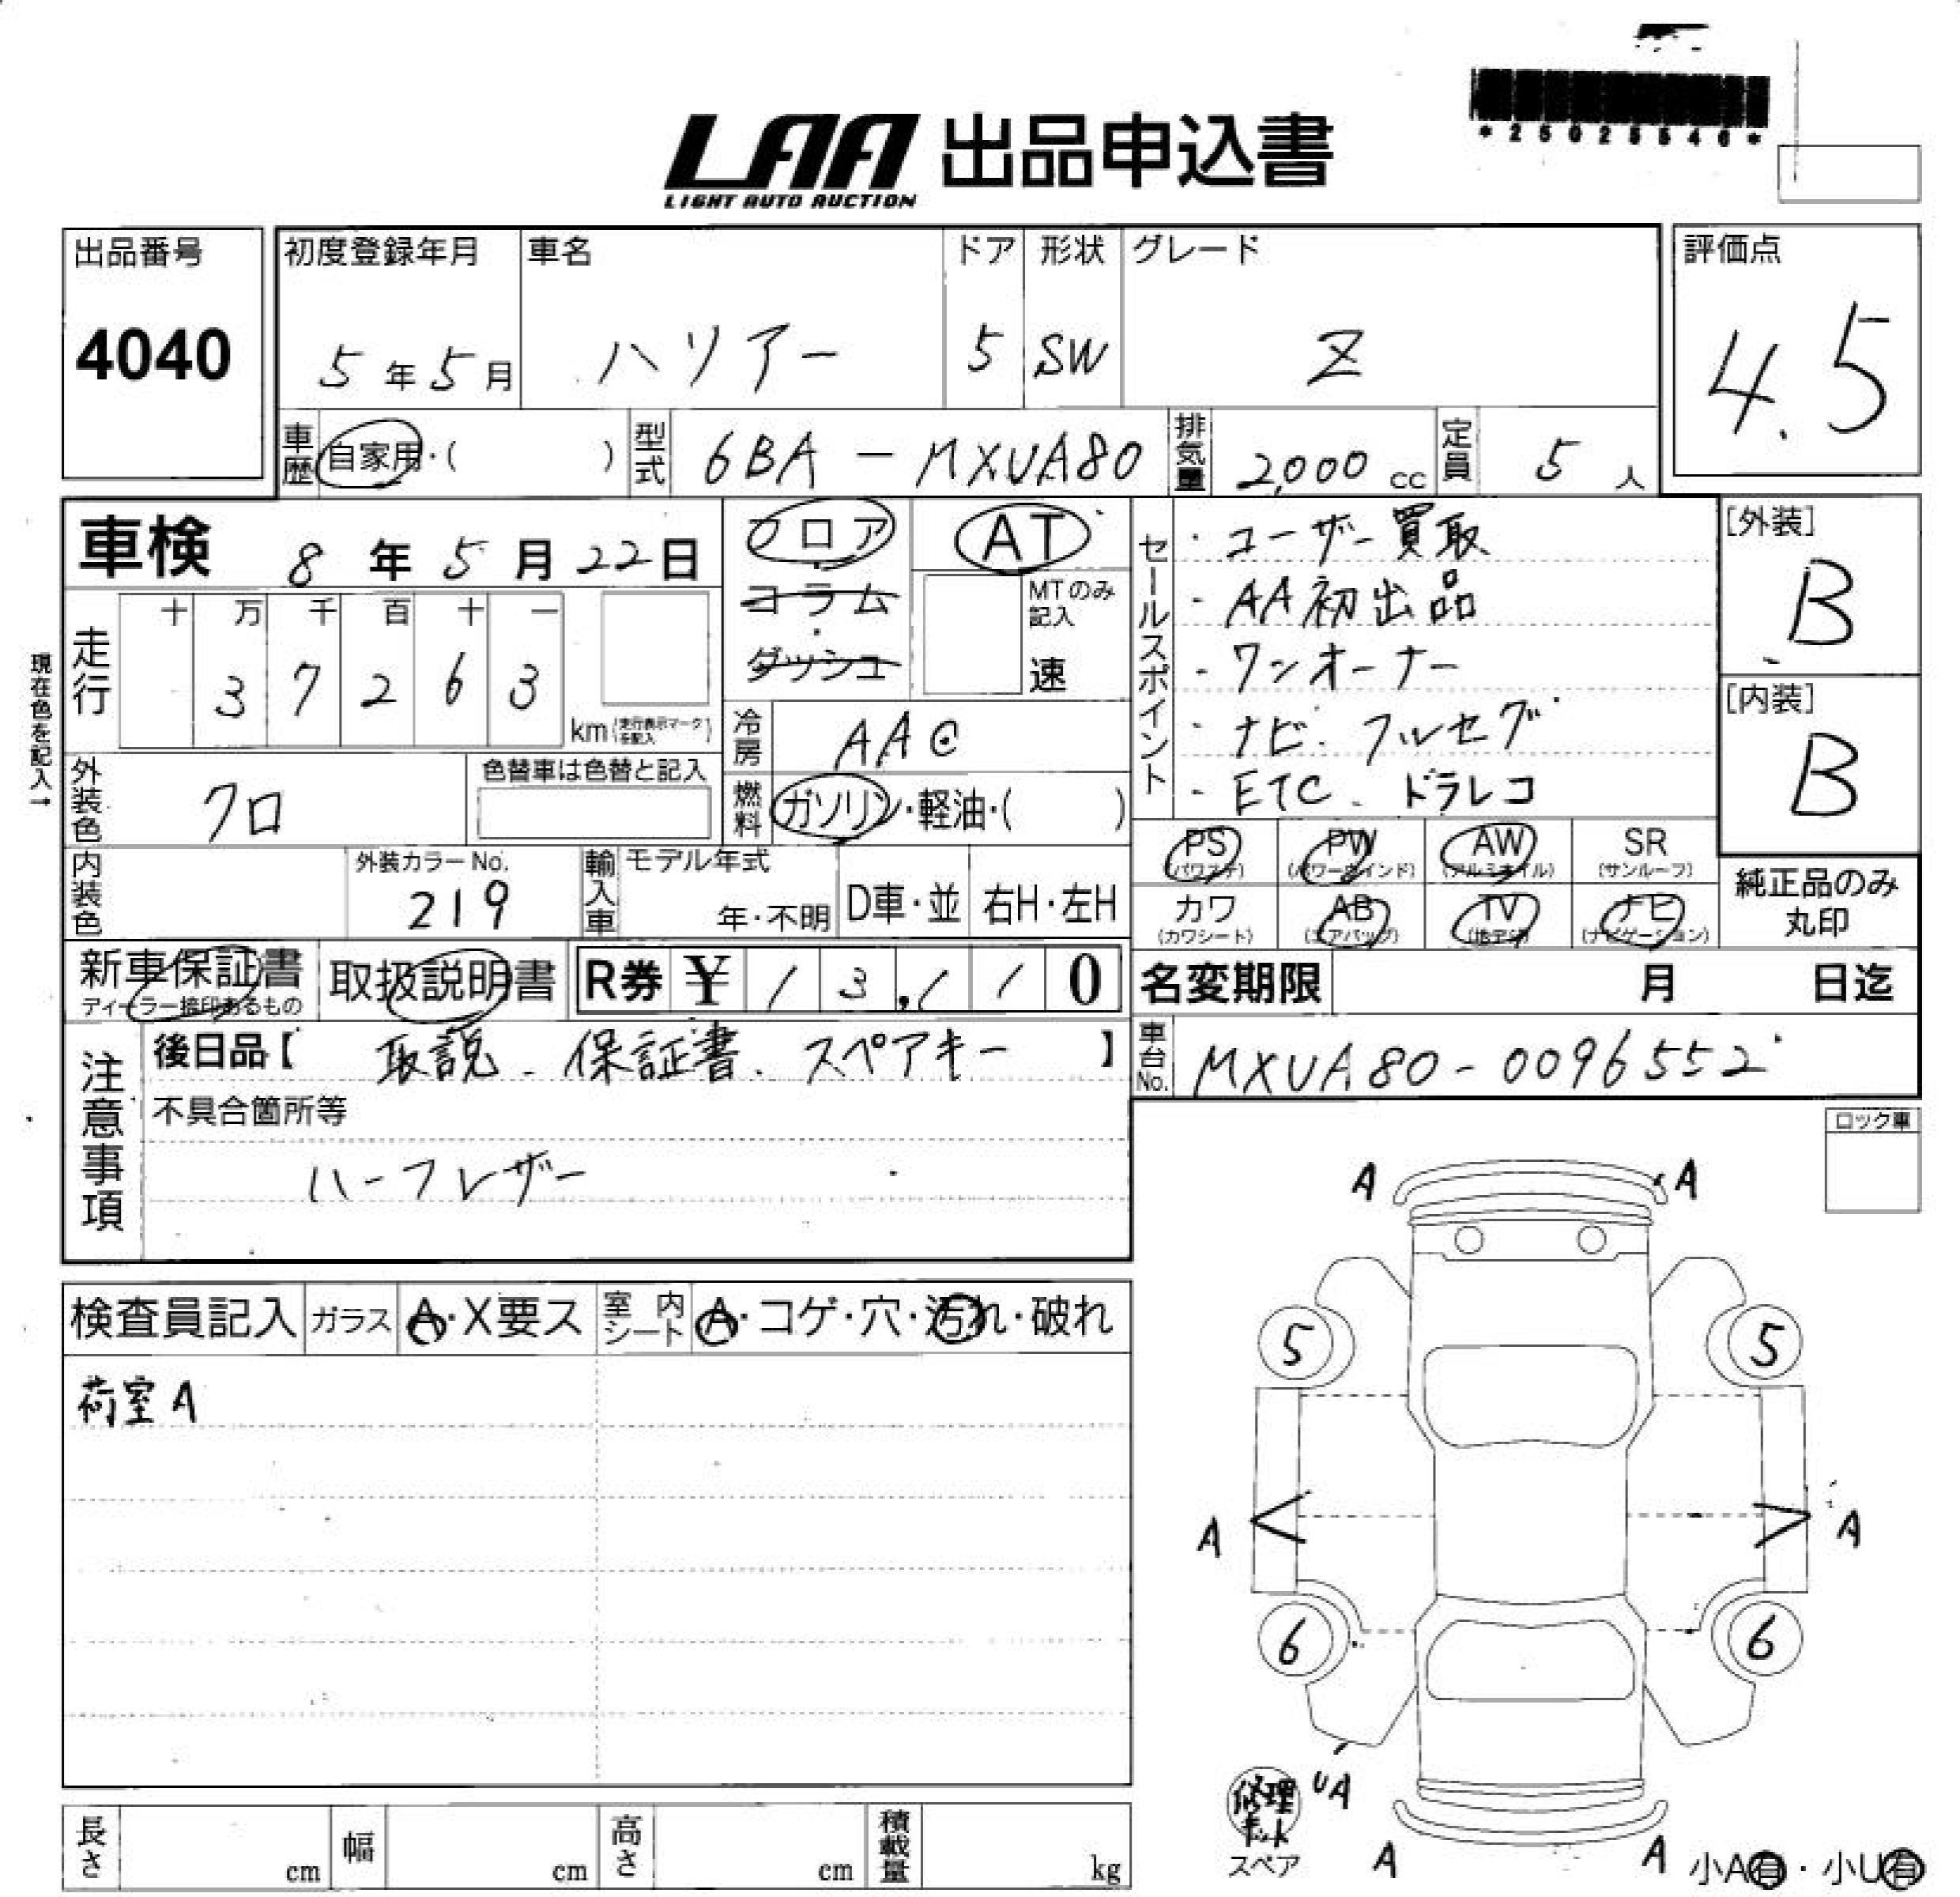 *25025540*
LAA 出品申込書
LIGHT AUTO AUCTION
出品番号
4040
初度登録年月
5年5月
車名
ハリアー
ドア
5
形状
SW
グレード
Z
評価点
4.5
車歴
自家用・( )
型式
6BA-MXUA80
排気量
2,000 cc
定員
5人
車検 8年5月22日
フロア
コラム
ダッシュ
AT
MTのみ記入
速
セールスポイント
・ユーザー買取
・AA初出品
・ワンオーナー
・ナビ・フルセグ
・ETC、ドラレコ
[外装]
B
[内装]
B
現在色を記入→
走行
十 万 千 百 十 一
3 7 2 6 3
km(走行表示マークを記入)
冷房
AAC
燃料
ガソリン・軽油・( )
外装色
クロ
色替車は色替と記入
内装色
外装カラーNo.
219
輸入車
モデル年式
年・不明
D車・並
右H・左H
PS
(パワステ)
PW
(パワーウインド)
AW
(アルミホイル)
SR
(サンルーフ)
カワ
(カワシート)
AB
(エアバッグ)
TV
(地デジ)
ナビ
(ナビゲーション)
純正品のみ
丸印
新車保証書
ディーラー捺印あるもの
取扱説明書
R券 ¥ 1 3,1 1 0
名変期限 月 日迄
車台No.
MXUA80-0096552
注意事項
後日品【 取説、保証書、スペアキー 】
不具合箇所等
ハーフレザー
ロック車
検査員記入
ガラス
A・X要ス
室内シート
A・コゲ・穴・汚れ・破れ
荷室A
A A
5 5
A A
6 6
UA
修理キット
スペア
A A
小A有・小U有
長さ cm
幅 cm
高さ cm
積載量 kg